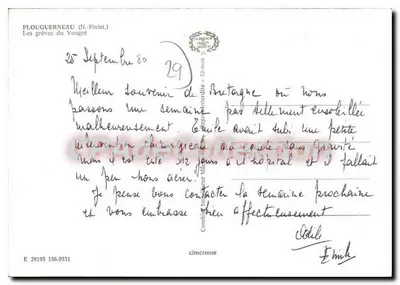 PLOUGUERNEAU (N.-Finist.)
Les grèves du Vougot
25 Septembre 80
29
Meilleur souvenir de Bretagne où nous
passons une semaine pas tellement ensoleillée
malheureusement Emile avait subi une petite
intervention chirurgicale au
mais il est resté 12 jours à l'hôpital et il fallait
un peu nous aérer.
Je pense vous contacter la semaine prochaine
et vous embrasse bien affectueusement
Odile
Emile
cimcrome
E 29195 156.0531